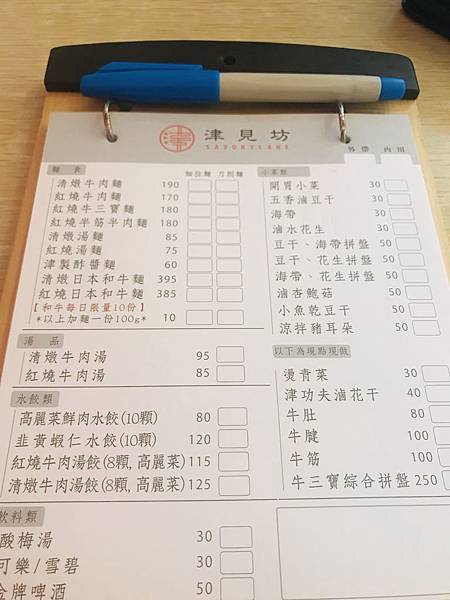 津見坊
SAVORYLANE
外帶 內用
麵食 細拉麵 刀削麵
清燉牛肉麵 190
紅燒牛肉麵 170
紅燒牛三寶麵 180
紅燒半筋半肉麵 180
清燉湯麵 85
紅燒湯麵 75
津製酢醬麵 60
清燉日本和牛麵 395
紅燒日本和牛麵 385
【和牛每日限量10份】
*以上加麵一份100g* 10
湯品
清燉牛肉湯 95
紅燒牛肉湯 85
水餃類
高麗菜鮮肉水餃(10顆) 80
韭黃蝦仁水餃(10顆) 120
紅燒牛肉湯餃(8顆,高麗菜) 115
清燉牛肉湯餃(8顆,高麗菜) 125
飲料類
酸梅湯 30
可樂/雪碧 30
金牌啤酒 50
小菜類
開胃小菜 30
五香滷豆干 30
海帶 30
滷水花生 30
豆干、海帶拼盤 50
豆干、花生拼盤 50
海帶、花生拼盤 50
滷杏鮑菇 50
小魚乾豆干 50
涼拌豬耳朵 50
以下為現點現做
燙青菜 30
津功夫滷花干 40
牛肚 80
牛腱 100
牛筋 100
牛三寶綜合拼盤 250